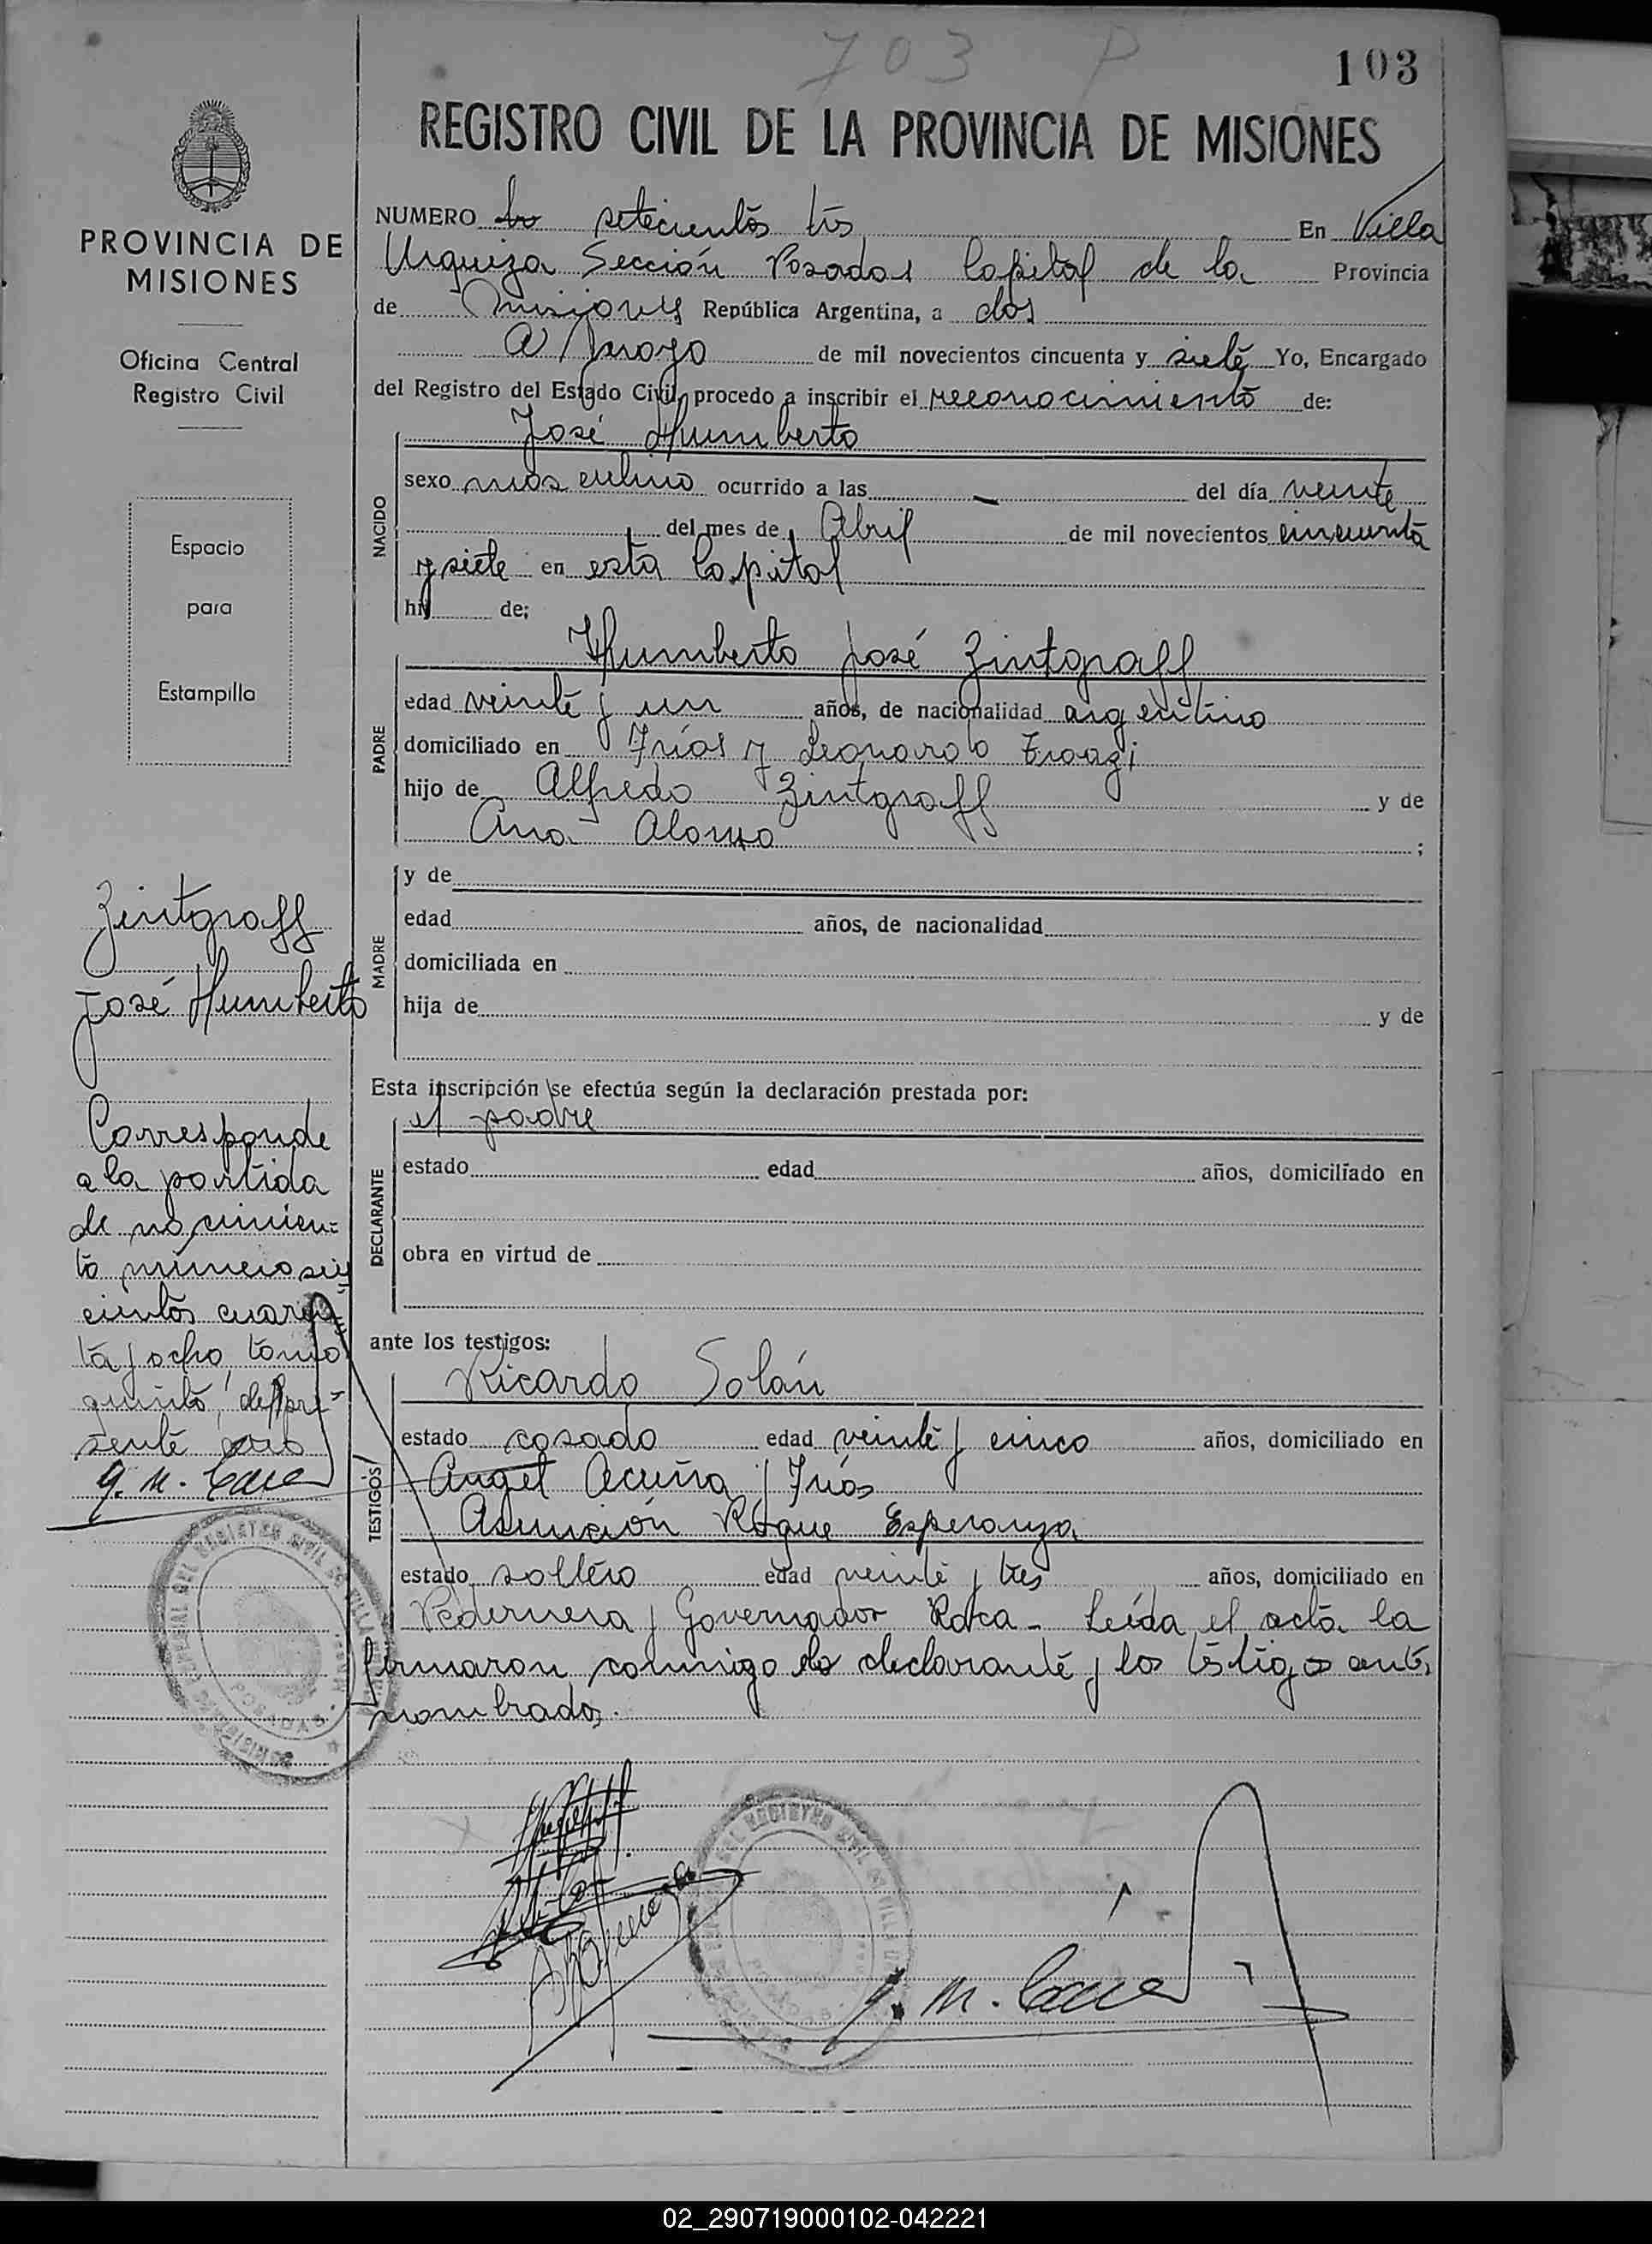 703 P
103
REGISTRO CIVIL DE LA PROVINCIA DE MISIONES
PROVINCIA DE
MISIONES
Oficina Central
Registro Civil
Espacio
para
Estampilla
Zintgraff
José Humberto
Corresponde
a la partida
de nacimien=
to número seis
cientos cuaren=
ta y ocho, tomo
quinto, del pre-
sente año
NUMERO setecientos tres En Villa
Urquiza Sección Posadas Capital de la Provincia
de Misiones República Argentina, a dos
Mayo de mil novecientos cincuenta y siete Yo, Encargado
del Registro del Estado Civil, procedo a inscribir el reconocimiento de:
José Humberto
NACIDO
sexo masculino ocurrido a las — del día veinte
del mes de Abril de mil novecientos cincuenta
y siete en esta Capital
hijo de;
Humberto José Zintgraff
PADRE
edad veinte y un años, de nacionalidad argentino
domiciliado en Frías y Leonardo
hijo de Alfredo Zintgraff y de
Ana Alonso ;
MADRE
y de
edad años, de nacionalidad
domiciliada en
hija de y de
Esta inscripción se efectúa según la declaración prestada por:
el padre
DECLARANTE
estado edad años, domiciliado en
obra en virtud de
ante los testigos:
Ricardo Solán
TESTIGOS
estado casado edad veinte y cinco años, domiciliado en
Angel Acuña y Frías
Asunción Roque Esperanza
estado soltero edad veinte y tres años, domiciliado en
Pedernera y Governador Roca - Leída el acta la
firmaron conmigo el declarante y los testigos ante
nombrados.
POSADAS
02_290719000102-042221